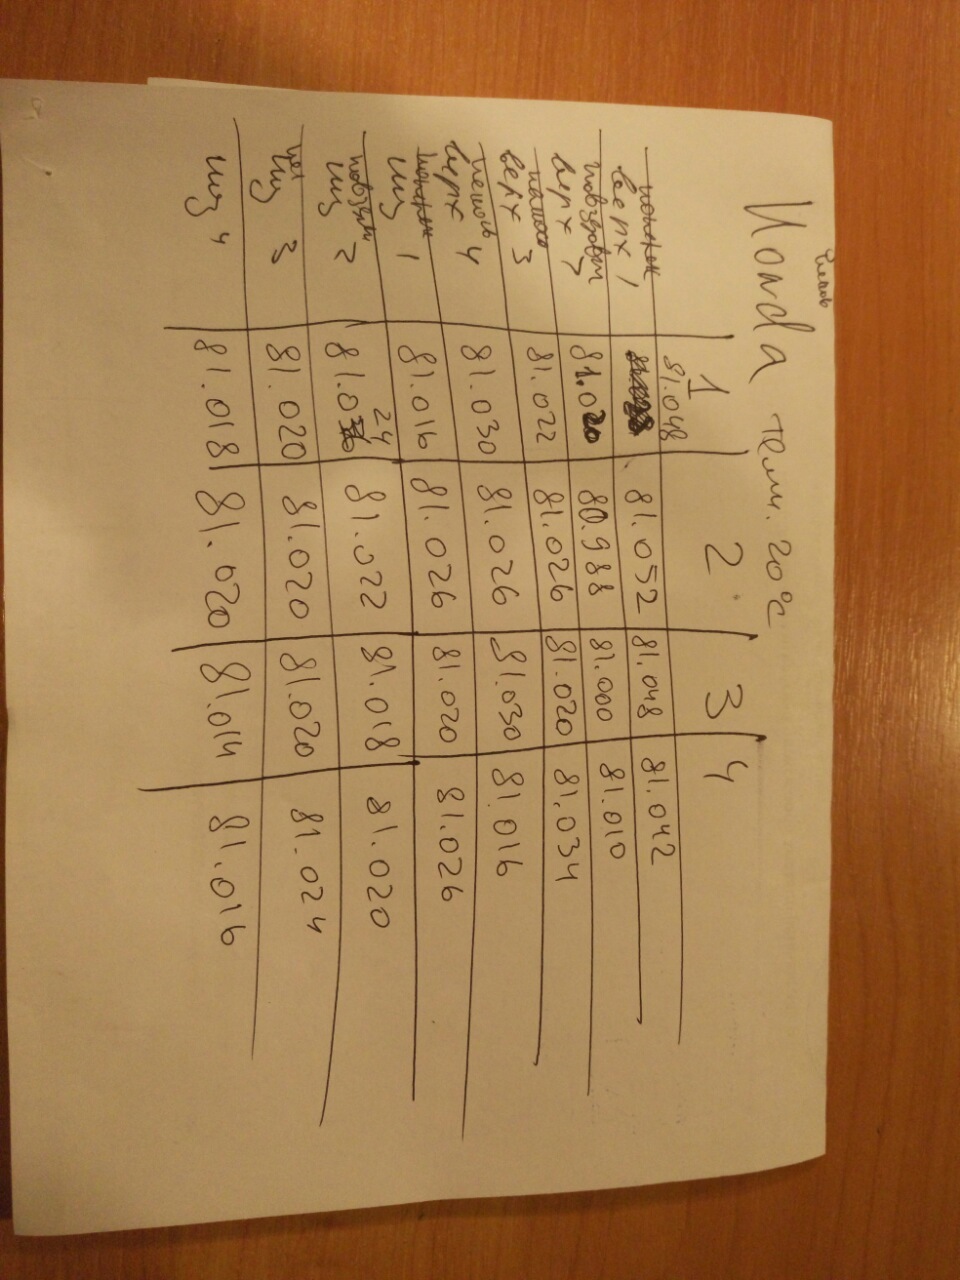 Honda темп. 20°C
1 2 3 4
верх 1 81.048 81.052 81.048 81.042
верх 81.020 80.988 81.000 81.010
верх 3 81.022 81.026 81.020 81.034
верх 4 81.030 81.026 81.030 81.016
низ 1 81.016 81.026 81.020 81.026
низ 2 81.024 81.022 81.018 81.020
низ 3 81.020 81.020 81.020 81.024
низ 4 81.018 81.020 81.014 81.016